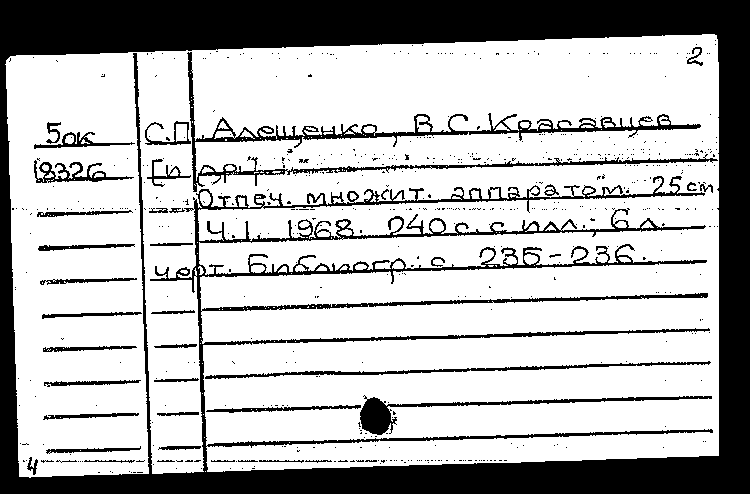 2
5ок С.П. Алещенко, В.С. Красавцев
18326 [и др.]
Отпеч. множит. аппаратом. 25см.
Ч.1. 1968. 240с. с илл.; 6 л.
черт. Библиогр.: с. 235-236.
4